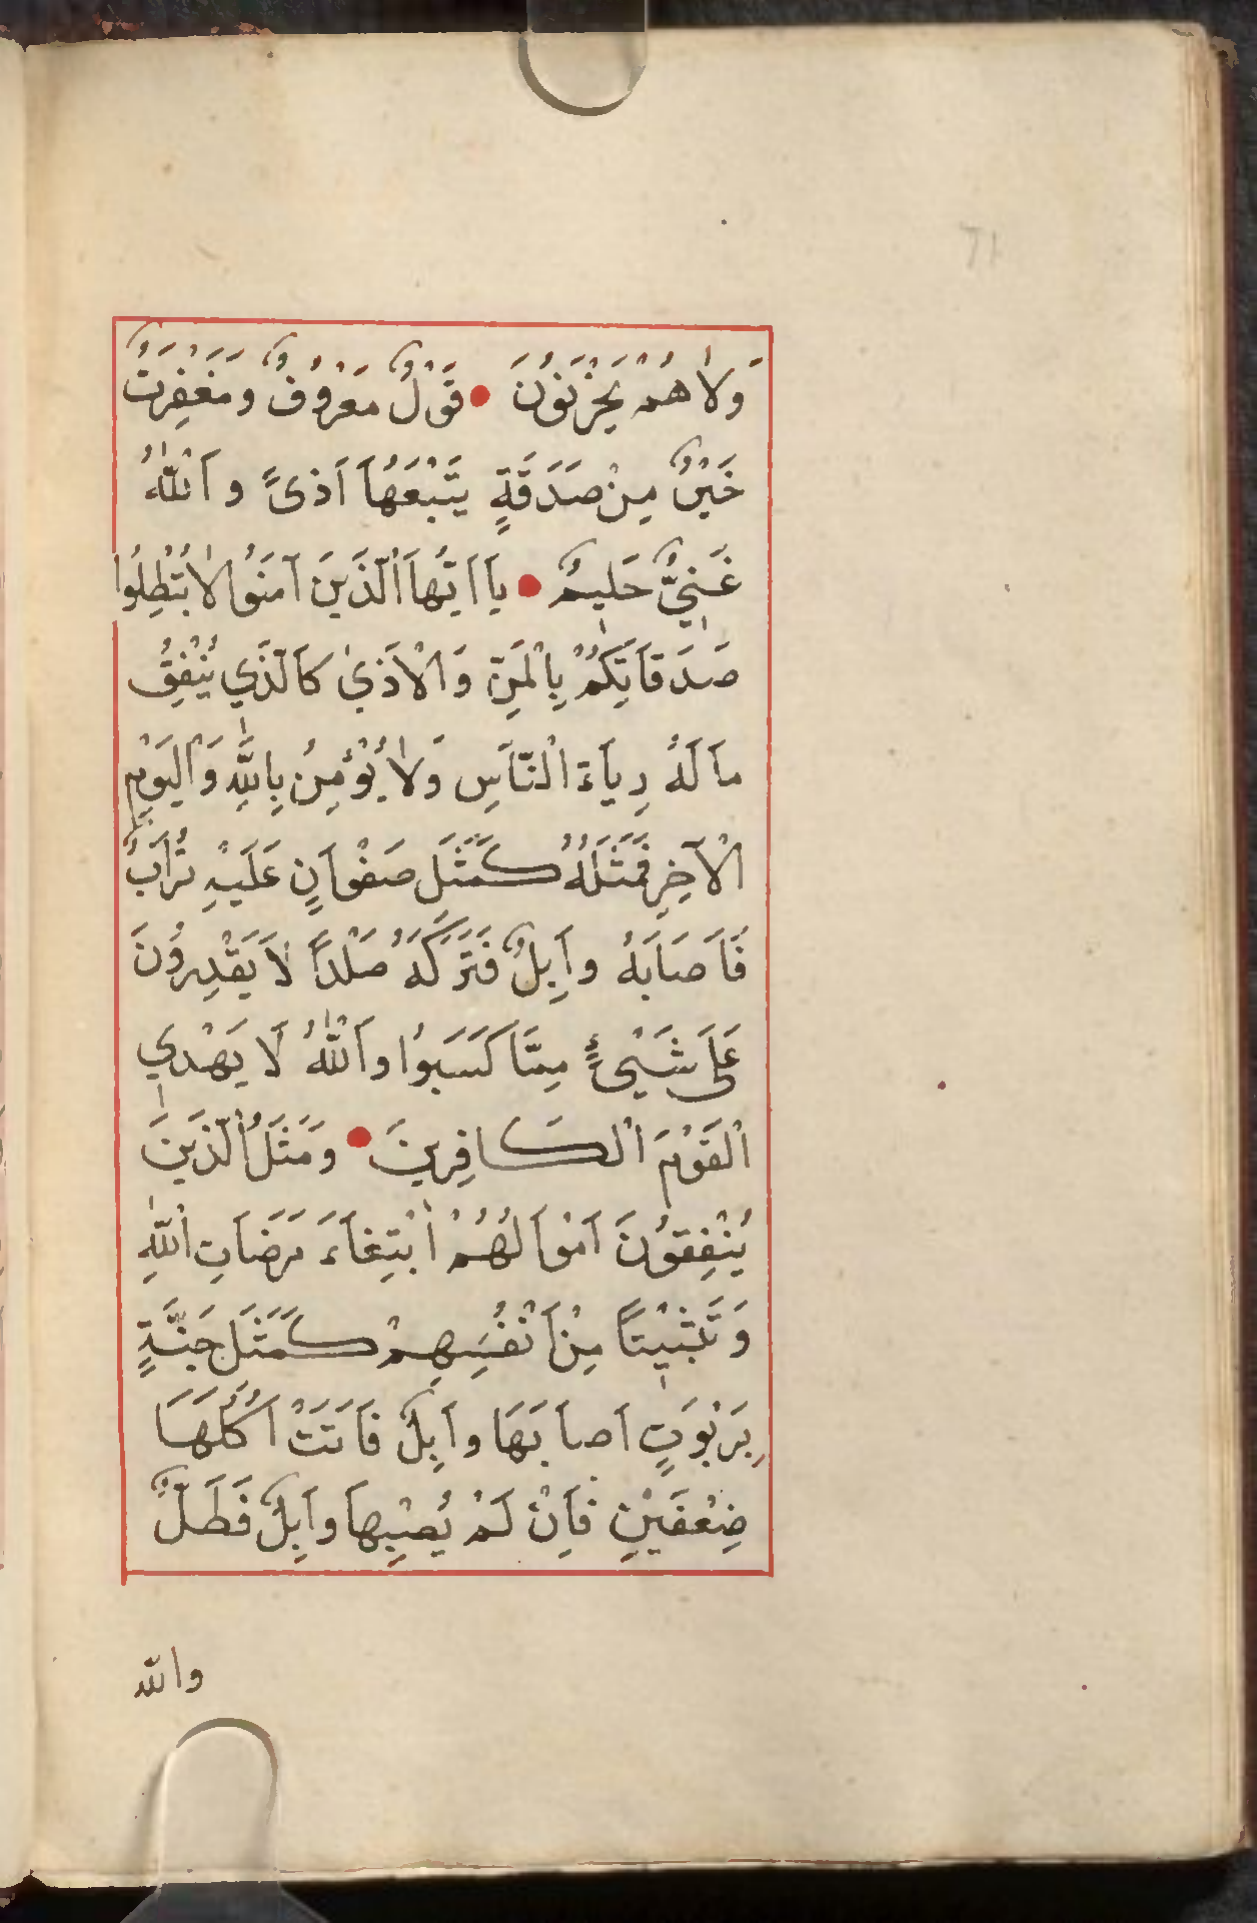 71
وَلاٰ هُمْ يَحْزَنُونَ قَوْلٌ مَعْرُوفٌ وَمَغْفِرَتٌ
خَيْرٌ مِنْ صَدَقَةٍ يَتْبَعُهَا اَذىً وَاَللّٰهُ
غَنِيٌّ حَلِيمٌ يَا اَيُّهَا اَلَّذِينَ آمَنُوا لاٰ تُبْطِلُوا
صَدَقَاتِكُمْ بِالْمَنِّ وَالْاَذىٰ كَالَّذِي يُنْفِقُ
مَا لَهُ رِيَاءَ الْنَّاسِ وَلاٰ يُؤْمِنُ بِاللّٰهِ وَالْيَوْمِ
الْآخِرِ فَمَثَلُهُ كَمَثَلِ صَفْوَانٍ عَلَيْهِ تُرَابٌ
فَاَصَابَهُ وَابِلٌ فَتَرَكَهُ صَلْداً لَا يَقْدِرُونَ
عَلَى شَيْئٍ مِمَّا كَسَبُوا وَاَللّٰهُ لَا يَهْدِي
اْلقَوْمَ اْلكَافِرِينَ وَمَثَلُ اَلَّذِينَ
يُنْفِقُونَ اَمْوَالَهُمْ اٰبْتِغَاءَ مَرْضَاتِ اْللّٰهِ
وَتَثْبِيْتاً مِنْ اَنْفُسِهِمْ كَمَثَلِ جَنَّةٍ
بِرَبْوَتٍ اَصَابَهَا وَابِلٌ فَاَتَتْ اُكُلَهَا
ضِعْفَيْنِ فَاِنْ لَمْ يُصِبْهَا وَابِلٌ فَطَلٌّ
والله